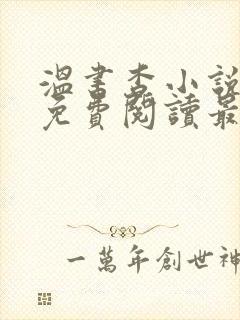 溫書杳小說
免費閱讀最
一萬年創世神